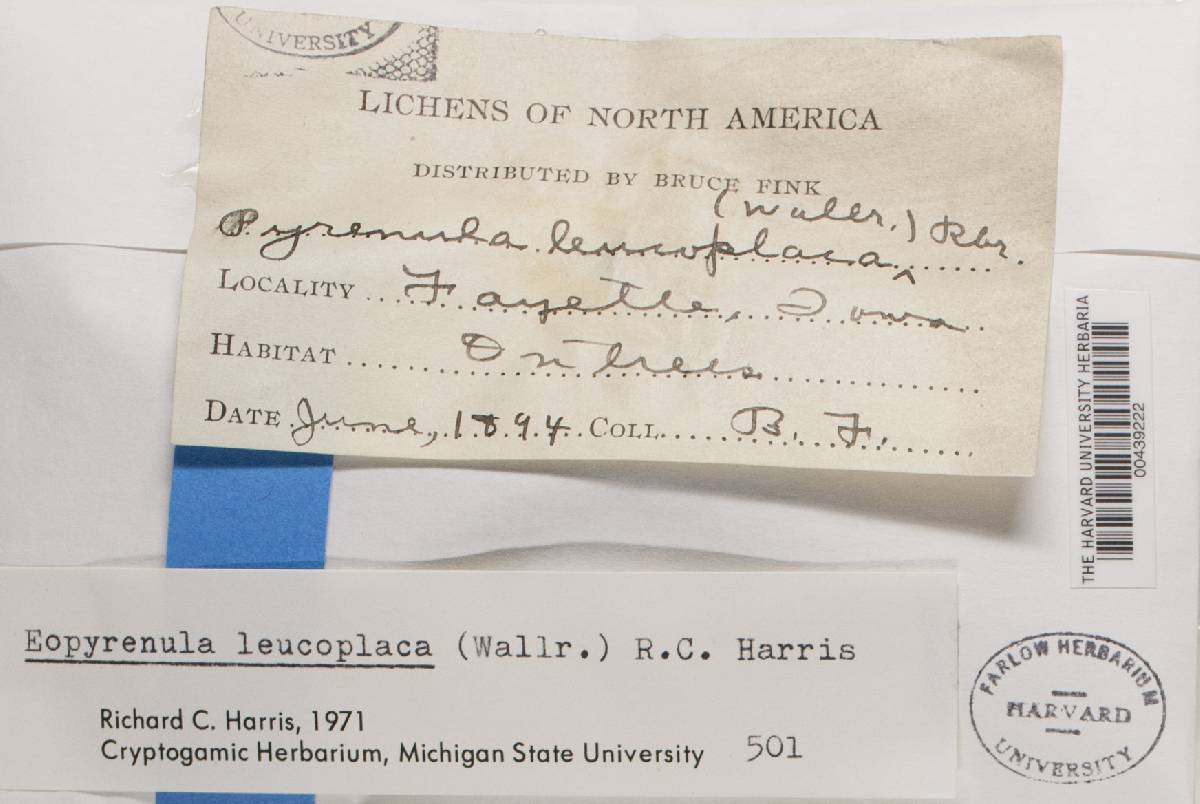 UNIVERSITY
LICHENS OF NORTH AMERICA
DISTRIBUTED BY BRUCE FINK
(Wallr.) Rbr.
Pyrenula leucoplaca ‸
LOCALITY Fayette, Iowa
HABITAT On trees
DATE June, 1894. COLL. B. F.
THE HARVARD UNIVERSITY HERBARIA
00439222
Eopyrenula leucoplaca (Wallr.) R.C. Harris
Richard C. Harris, 1971
Cryptogamic Herbarium, Michigan State University 501
FARLOW HERBARIUM
HARVARD
UNIVERSITY